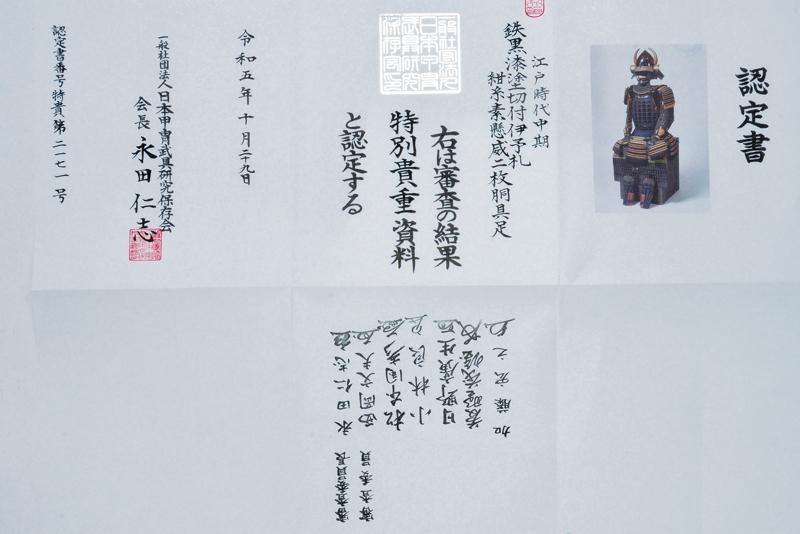 認定書
江戸時代中期
鉄黒漆塗切付伊予札
紺糸素懸威二枚胴具足
右は審査の結果
特別貴重資料
と認定する
令和五年十月二十九日
一般社団法人日本甲冑武具研究保存会
会長 永田仁志
認定書番号特貴第二一七一号
審査委員長 永田仁志
審査委員 西岡文夫
小林良
日野廣生
加藤宏之